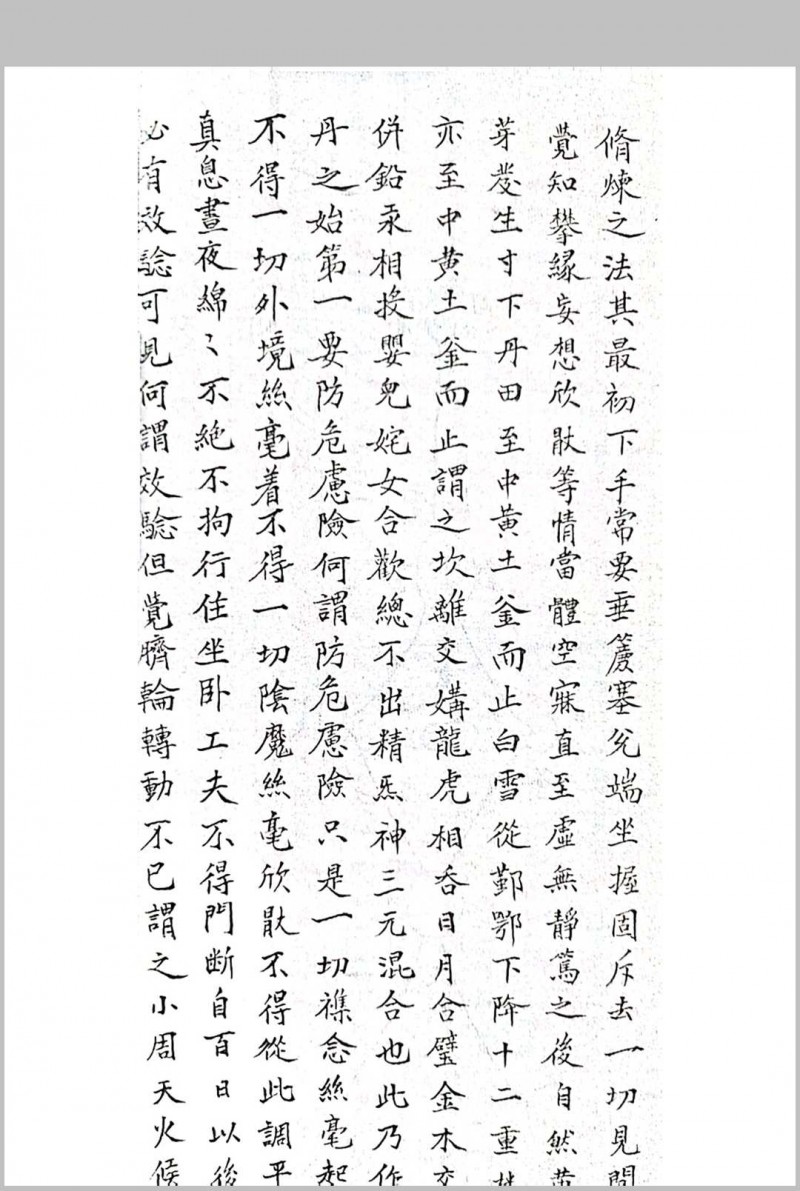 脩煉之法其最初下手常要垂簾塞兊端坐握固斥去一切見聞
覺知攀緣妄想欣猒等情當體空寂直至虛無靜篤之後自然黄
芽發生寸下丹田至中黄土釜而止白雪從鄞鄂下降十二重
亦至中黄土釜而止謂之坎離交媾龍虎相吞日月合璧金木交
併鉛汞相投嬰兒姹女合歡總不出精炁神三元混合也此乃作
丹之始第一要防危慮險何謂防危慮險只是一切襍念絲毫起
不得一切外境絲毫着不得一切陰魔絲毫欣猒不得從此調平
真息晝夜綿〻不絕不拘行住坐卧工夫不得門断自百日以後
必有效驗可見何謂效驗但覺臍輪轉動不已謂之小周天火候